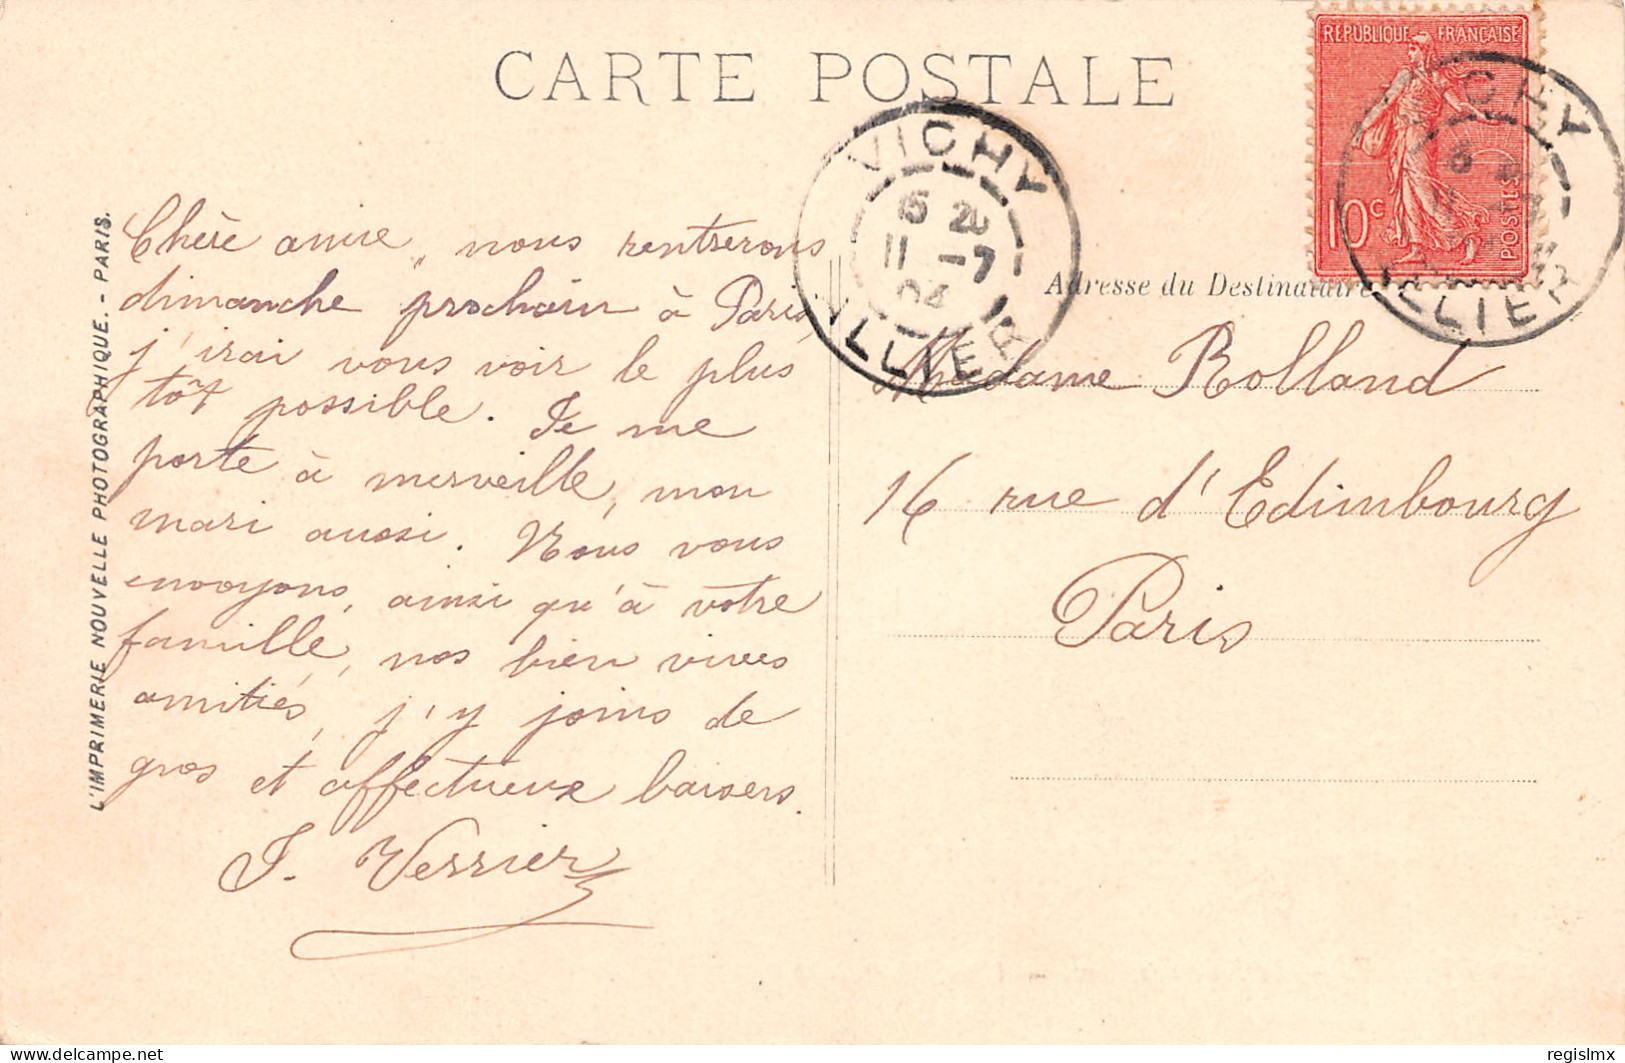 CARTE POSTALE
RÉPUBLIQUE FRANÇAISE
10c
POSTES
VICHY
15 20
11 -7
04
ALLIER
VICHY
ALLIER
Adresse du Destinataire
L'IMPRIMERIE NOUVELLE PHOTOGRAPHIQUE. - PARIS.
Chère amie, nous rentrerons
dimanche prochain à Paris,
j'irai vous voir le plus
tôt possible. Je me
porte à merveille, mon
mari aussi. Nous vous
envoyons, ainsi qu'à votre
famille, nos bien vives
amitiés, j'y joins de
gros et affectueux baisers.
J. Verrier
Madame Rolland
16 rue d'Edimbourg
Paris
delcampe.net
regislmx